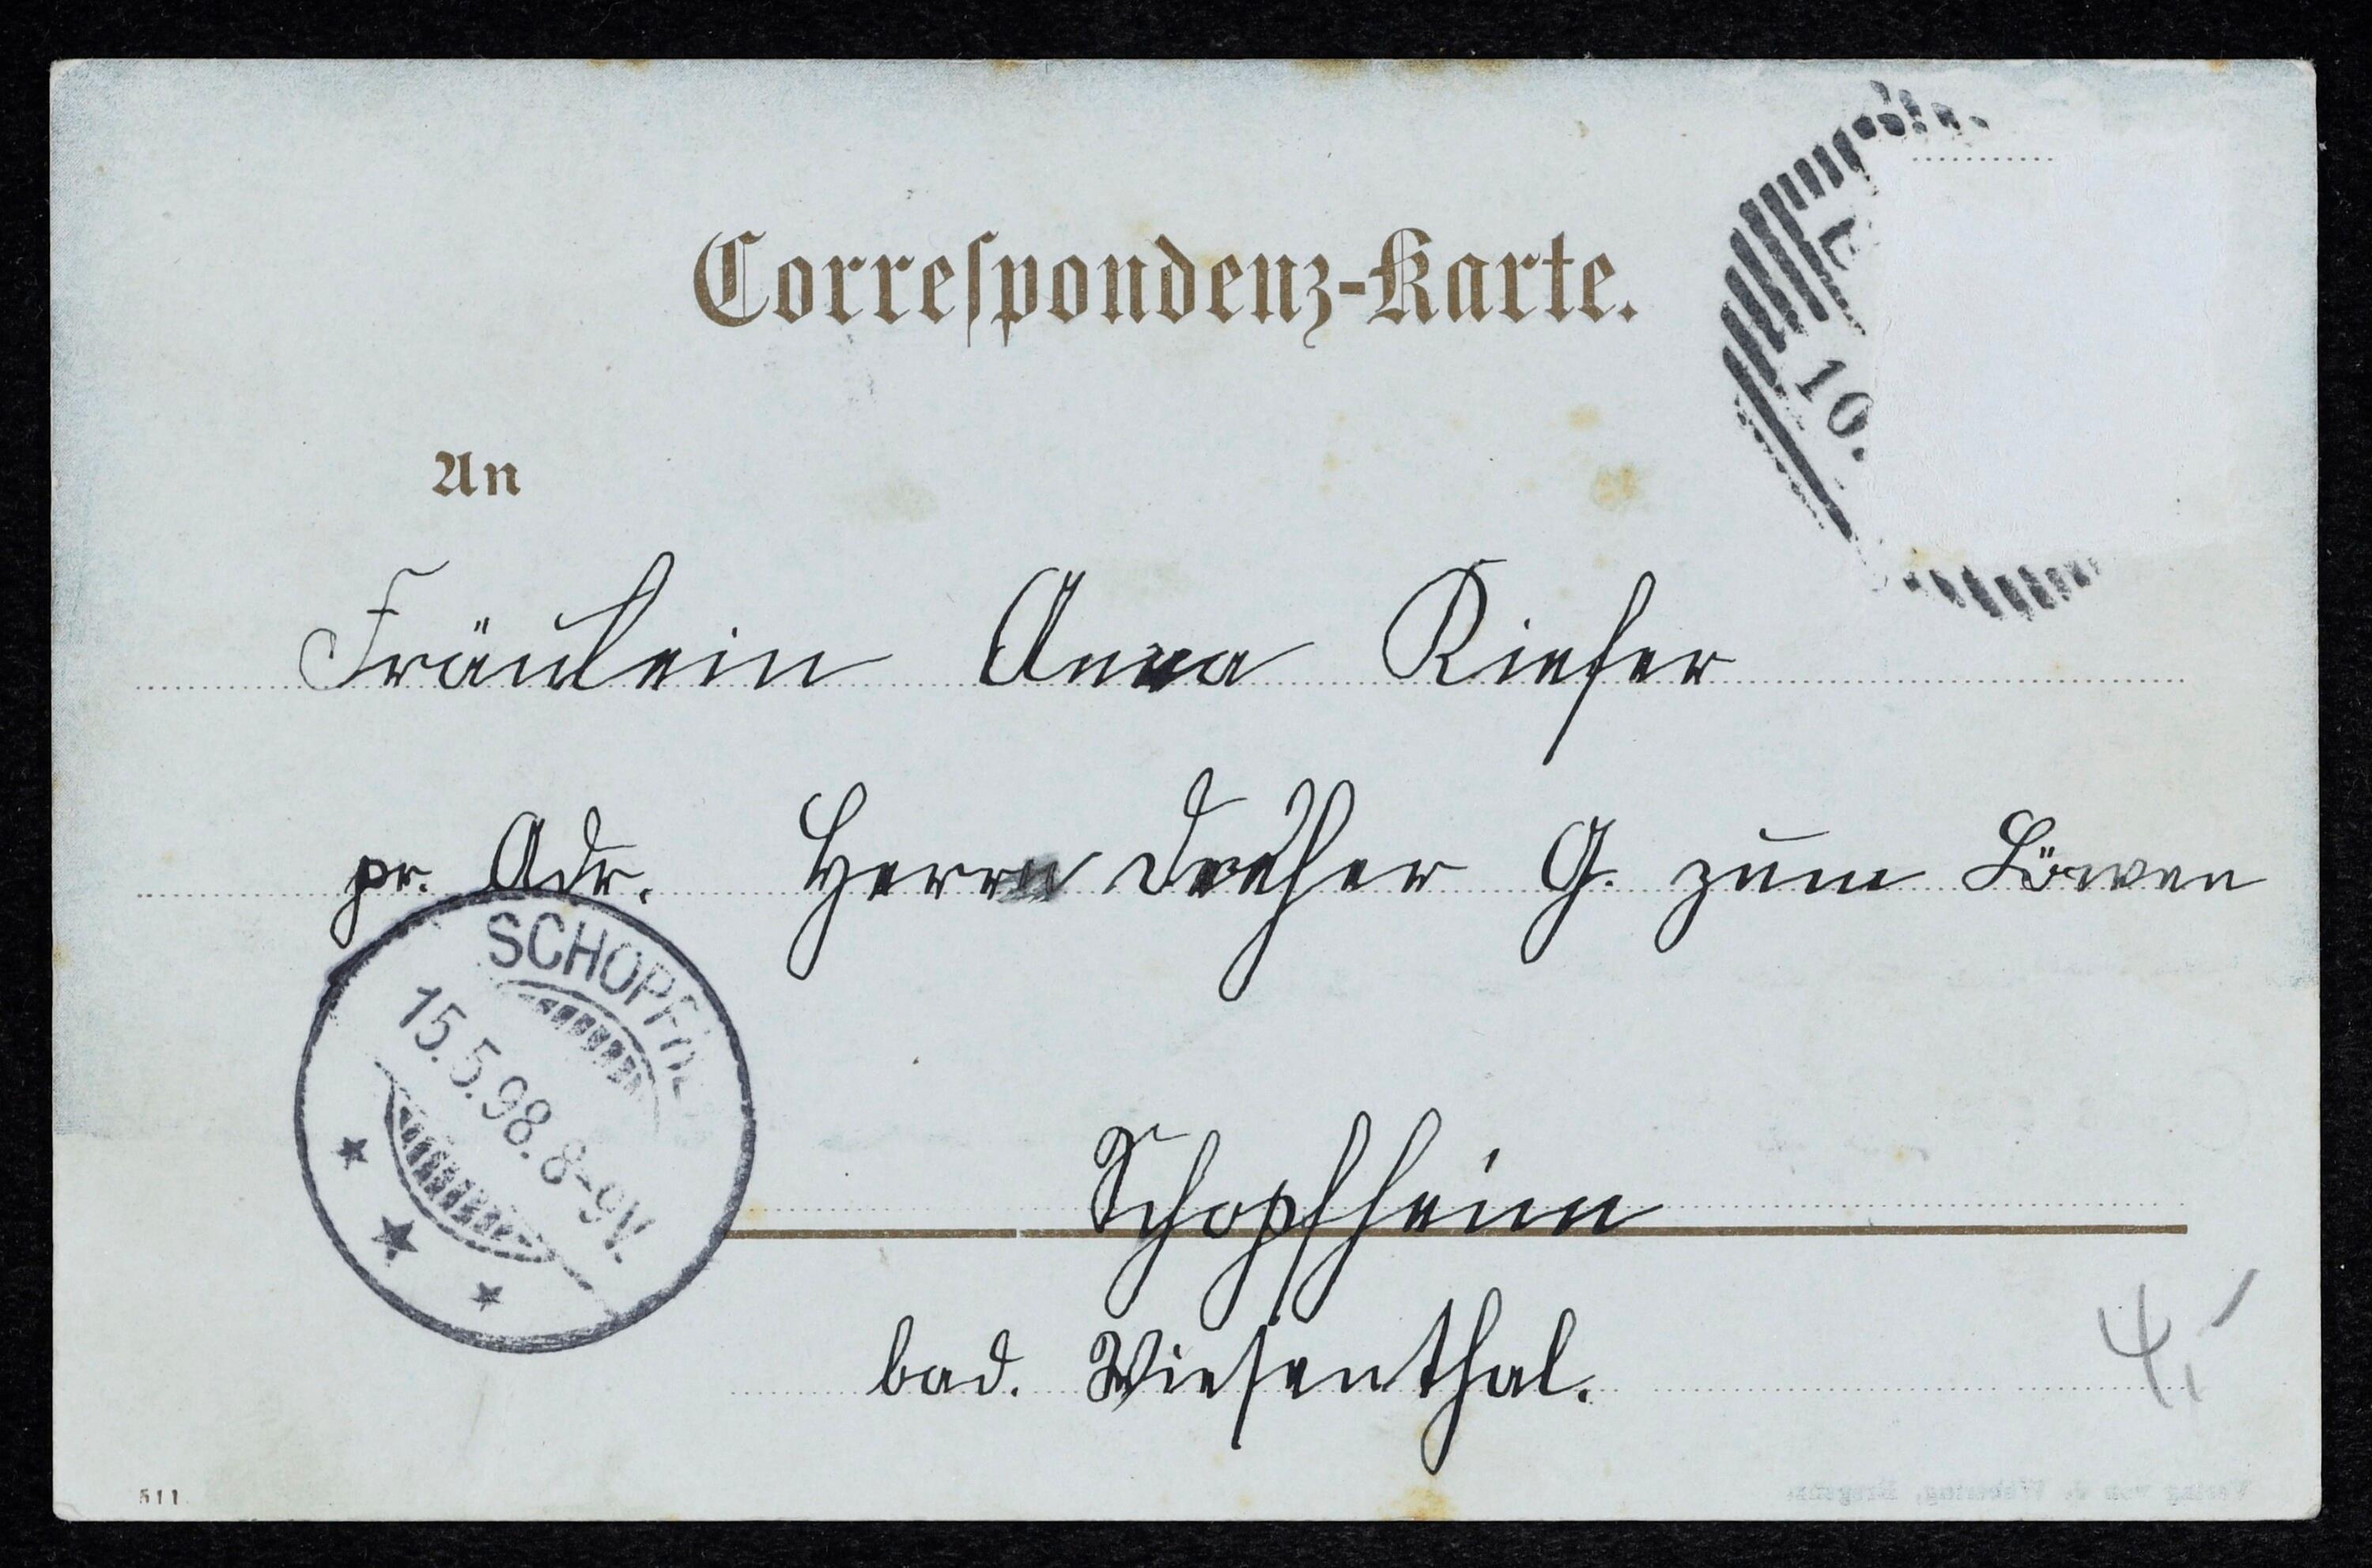 Correspondenz-Karte.
10.
An
Fräulein Anna Kiefer
pr. Adr. Herrn Dreher G. zum Löwen
SCHOPFH
15.5.98.8-9V.
Schopfheim
bad. Wiesenthal.
4,
511